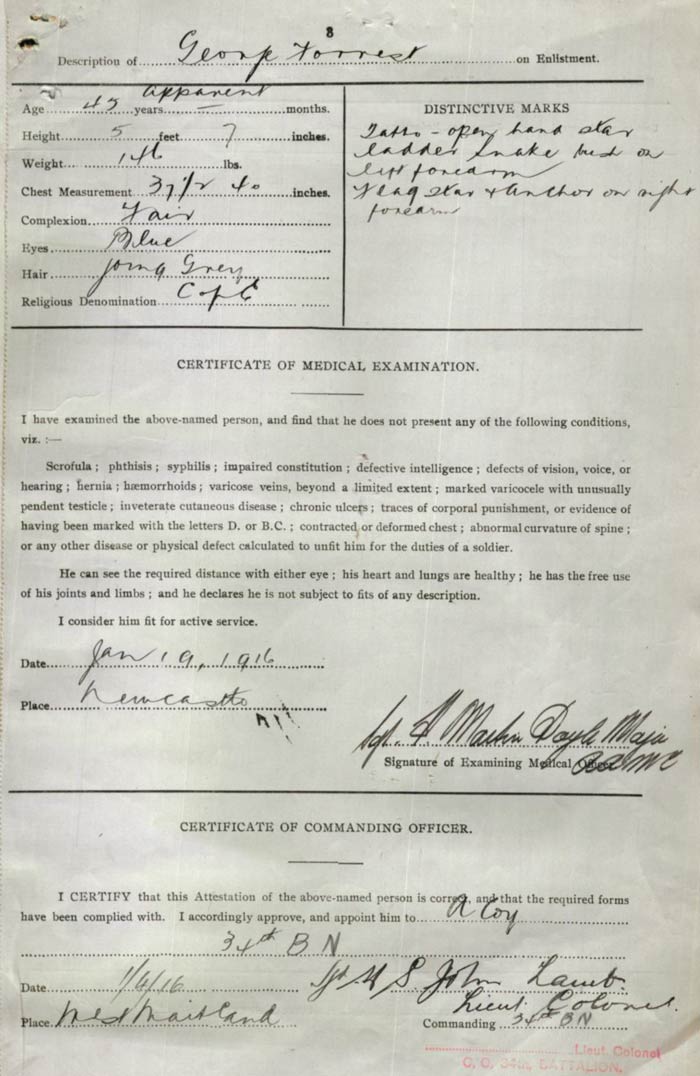 3
Description of George Forrest on Enlistment.
apparent
Age 45 years — months.
Height 5 feet 7 inches.
Weight 146 lbs.
Chest Measurement 37 1/2 40 inches.
Complexion Fair
Eyes Blue
Hair going Grey
Religious Denomination C of E
DISTINCTIVE MARKS
Tatto - open hand star
ladder snake bird on
left forearm
Flag star & anchor on right
forearm
CERTIFICATE OF MEDICAL EXAMINATION.
I have examined the above-named person, and find that he does not present any of the following conditions,
viz. :—
Scrofula ; phthisis ; syphilis ; impaired constitution ; defective intelligence ; defects of vision, voice, or
hearing ; hernia ; hæmorrhoids ; varicose veins, beyond a limited extent ; marked varicocele with unusually
pendent testicle ; inveterate cutaneous disease ; chronic ulcers ; traces of corporal punishment, or evidence of
having been marked with the letters D. or B.C. ; contracted or deformed chest ; abnormal curvature of spine ;
or any other disease or physical defect calculated to unfit him for the duties of a soldier.
He can see the required distance with either eye ; his heart and lungs are healthy ; he has the free use
of his joints and limbs ; and he declares he is not subject to fits of any description.
I consider him fit for active service.
Date Jan 19, 1916
Place Newcastle
Doyle Major
AAMC
Signature of Examining Medical Officer.
CERTIFICATE OF COMMANDING OFFICER.
I CERTIFY that this Attestation of the above-named person is correct, and that the required forms
have been complied with. I accordingly approve, and appoint him to A Coy
34th BN
Date 1/4/16
Sgd M S. John Lamb
Lieut Colonel.
Place West Maitland
Commanding 34th BN
Lieut. Colonel
C. O. 34th. BATTALION.